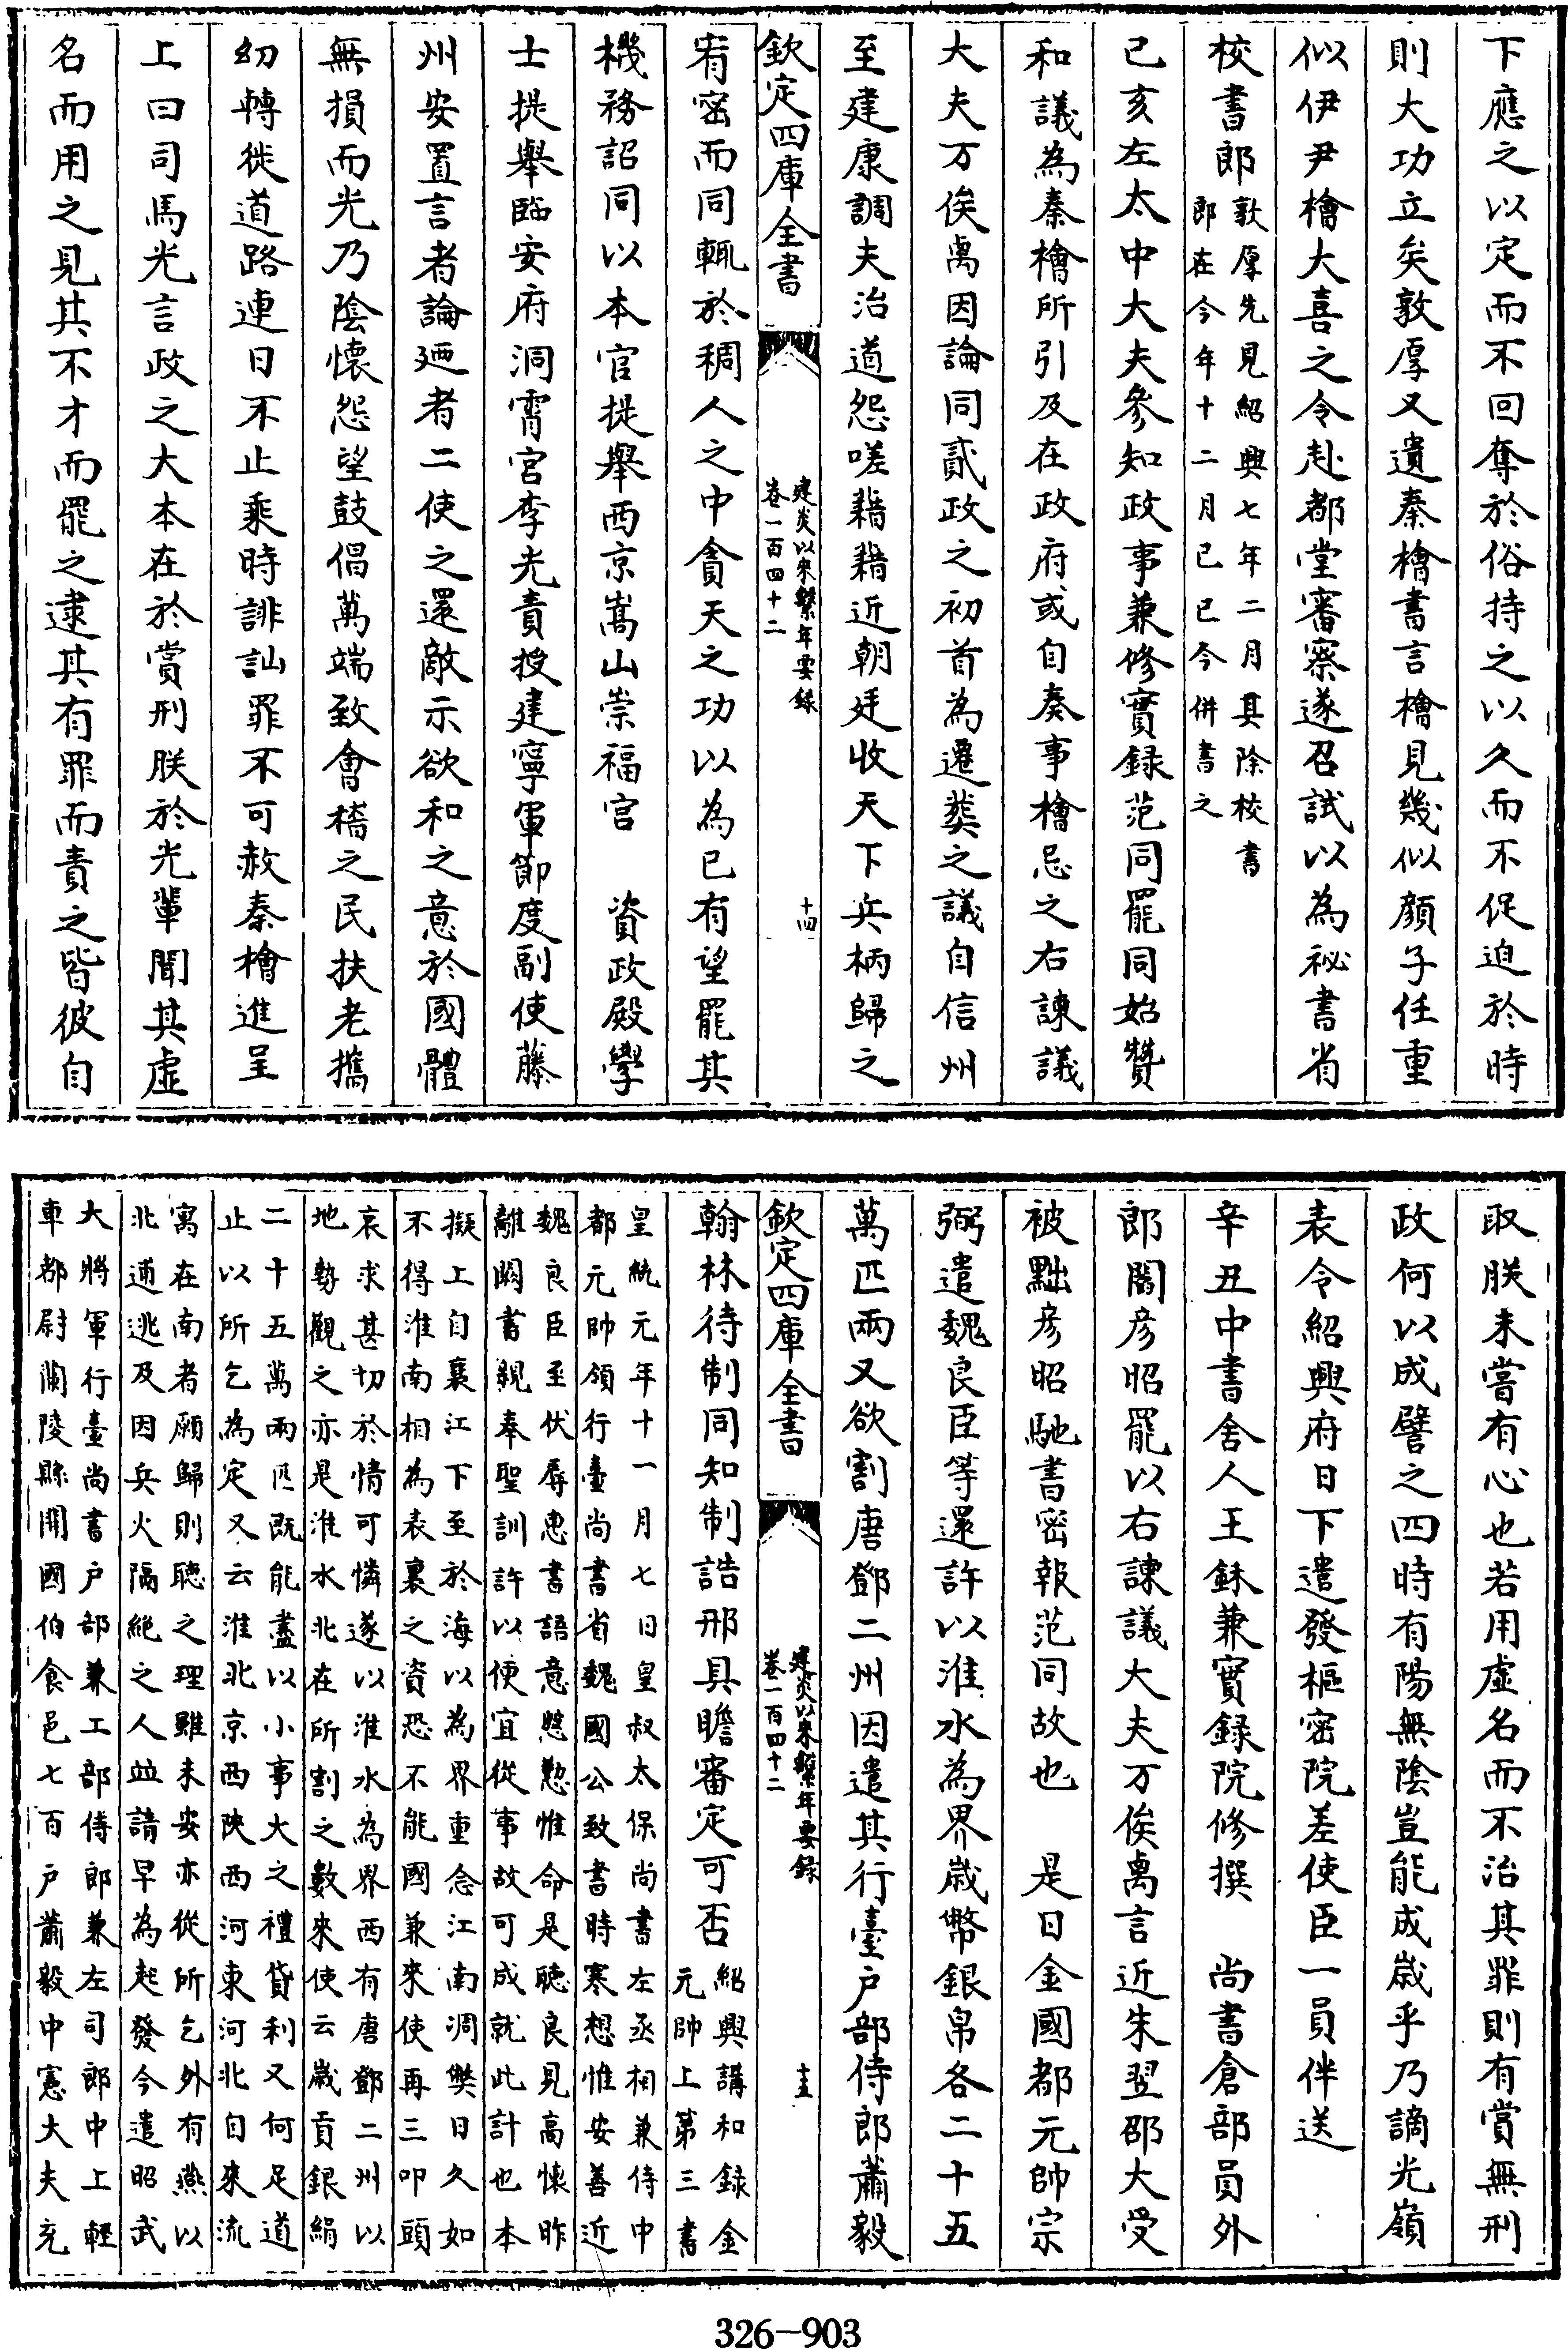 下應之以定而不回奪於俗持之以久而不促迫於時
則大功立矣敦厚又遺秦檜書言檜見幾似顔子任重
似伊尹檜大喜之令赴都堂審察遂召試以為祕書省
校書郎敦厚先見紹興七年二月其除校書
郎在今年十二月已巳今併書之
已亥左太中大夫參知政事兼修實録范同罷同始贊
和議為秦檜所引及在政府或自奏事檜忌之右諫議
大夫万俟卨因論同貳政之初首為遷葬之議自信州
至建康調夫治道怨嗟藉藉近朝廷收天下兵柄歸之
欽定四庫全書
建炎以來繫年要録
卷一百四十二
十四
宥密而同輒於稠人之中貪天之功以為已有望罷其
機務詔同以本官提舉西京嵩山崇福宮 資政殿學
士提舉臨安府洞霄宮李光責授建寧軍節度副使藤
州安置言者論廼者二使之還敵示欲和之意於國體
無損而光乃陰懷怨望鼓倡萬端致會稽之民扶老攜
幼轉徙道路連日不止乘時誹訕罪不可赦秦檜進呈
上曰司馬光言政之大本在於賞刑朕於光輩聞其虛
名而用之見其不才而罷之逮其有罪而責之皆彼自
取朕未嘗有心也若用虛名而不治其罪則有賞無刑
政何以成譬之四時有陽無陰豈能成歲乎乃謫光嶺
表令紹興府日下遣發樞密院差使臣一員伴送
辛丑中書舍人王鉌兼實録院修撰 尚書倉部員外
郎閻彦昭罷以右諫議大夫万俟卨言近朱翌邵大受
被黜彦昭馳書密報范同故也 是日金國都元帥宗
弼遣魏良臣等還許以淮水為界歲幣銀帛各二十五
萬匹兩又欲割唐鄧二州因遣其行臺户部侍郎蕭毅
欽定四庫全書
建炎以來繫年要録
卷一百四十二
十五
翰林待制同知制誥邢具瞻審定可否紹興講和録金
元帥上第三書
皇統元年十一月七日皇叔太保尚書左丞相兼侍中
都元帥領行臺尚書省魏國公致書時寒想惟安善近
魏良臣至伏辱惠書語意慇懃惟命是聽良見高懷昨
離闕書親奉聖訓許以便宜從事故可成就此計也本
擬上自襄江下至於海以為界重念江南凋獘日久如
不得淮南相為表裏之資恐不能國兼來使再三叩頭
哀求甚切於情可憐遂以淮水為界西有唐鄧二州以
地勢觀之亦是淮水北在所割之數來使云歲貢銀絹
二十五萬兩匹既能盡以小事大之禮貸利又何足道
止以所乞為定又云淮北京西陜西河東河北自來流
寓在南者願歸則聽之理雖未安亦從所乞外有燕以
北逋逃及因兵火隔絶之人並請早為起發今遣昭武
大將軍行臺尚書户部兼工部侍郎兼左司郎中上輕
車都尉蘭陵縣開國伯食邑七百户蕭毅中憲大夫充
326-903